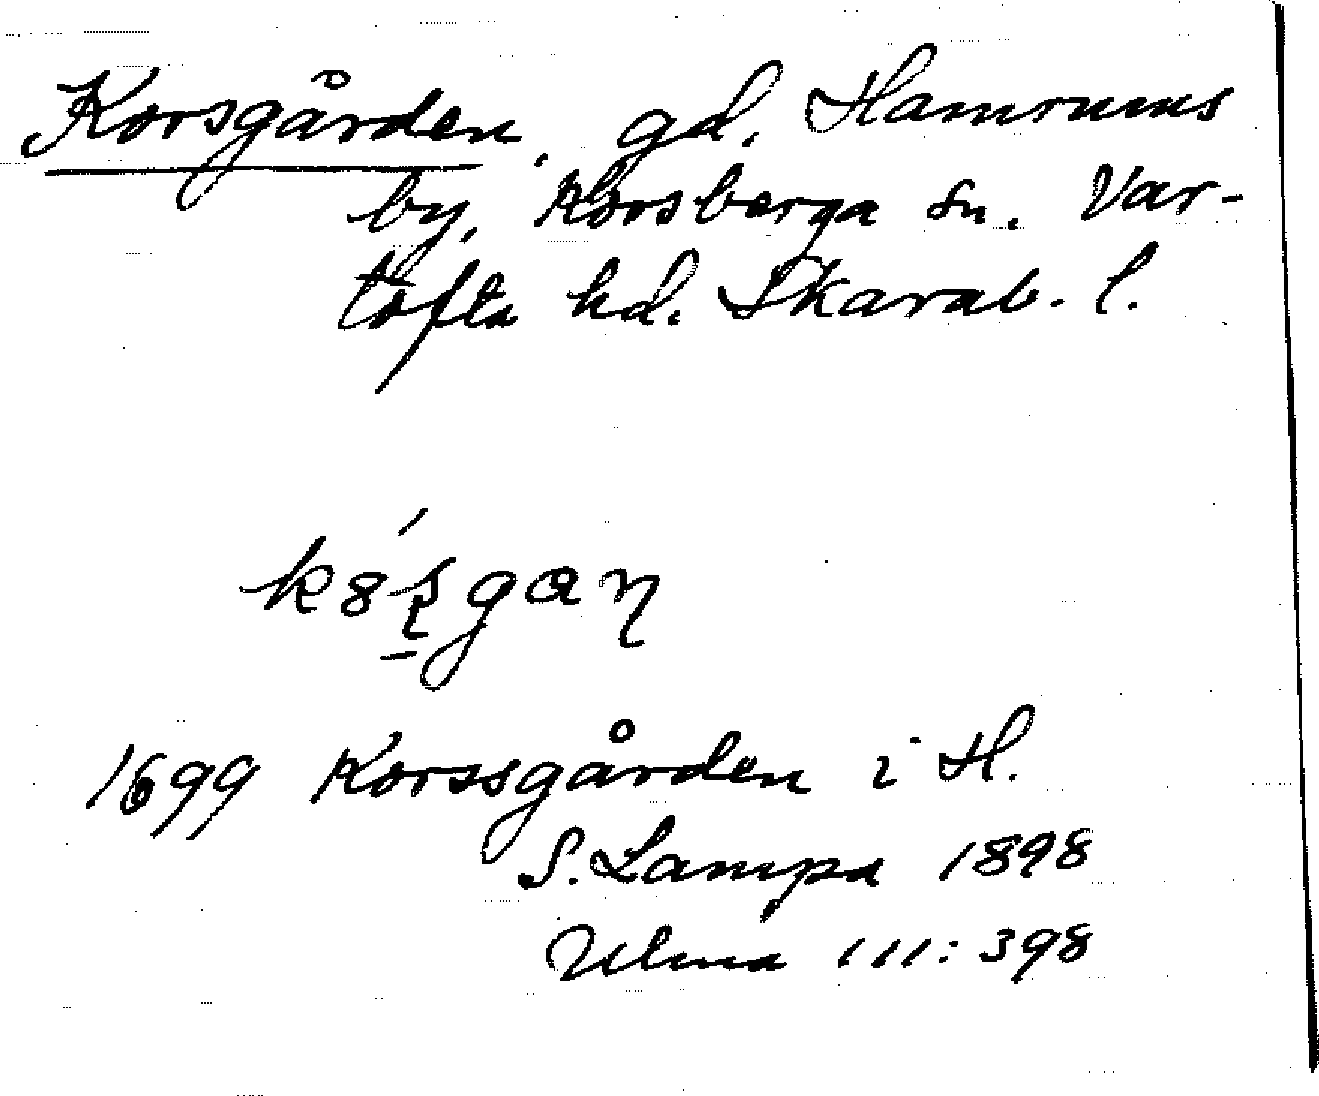 Korsgården, gd. Hamrums
by, Korsberga sn. Var-
tofta hd. Skarab. l.
1699 Korssgården i H.
S. Lampa 1898
Ulma 111: 398